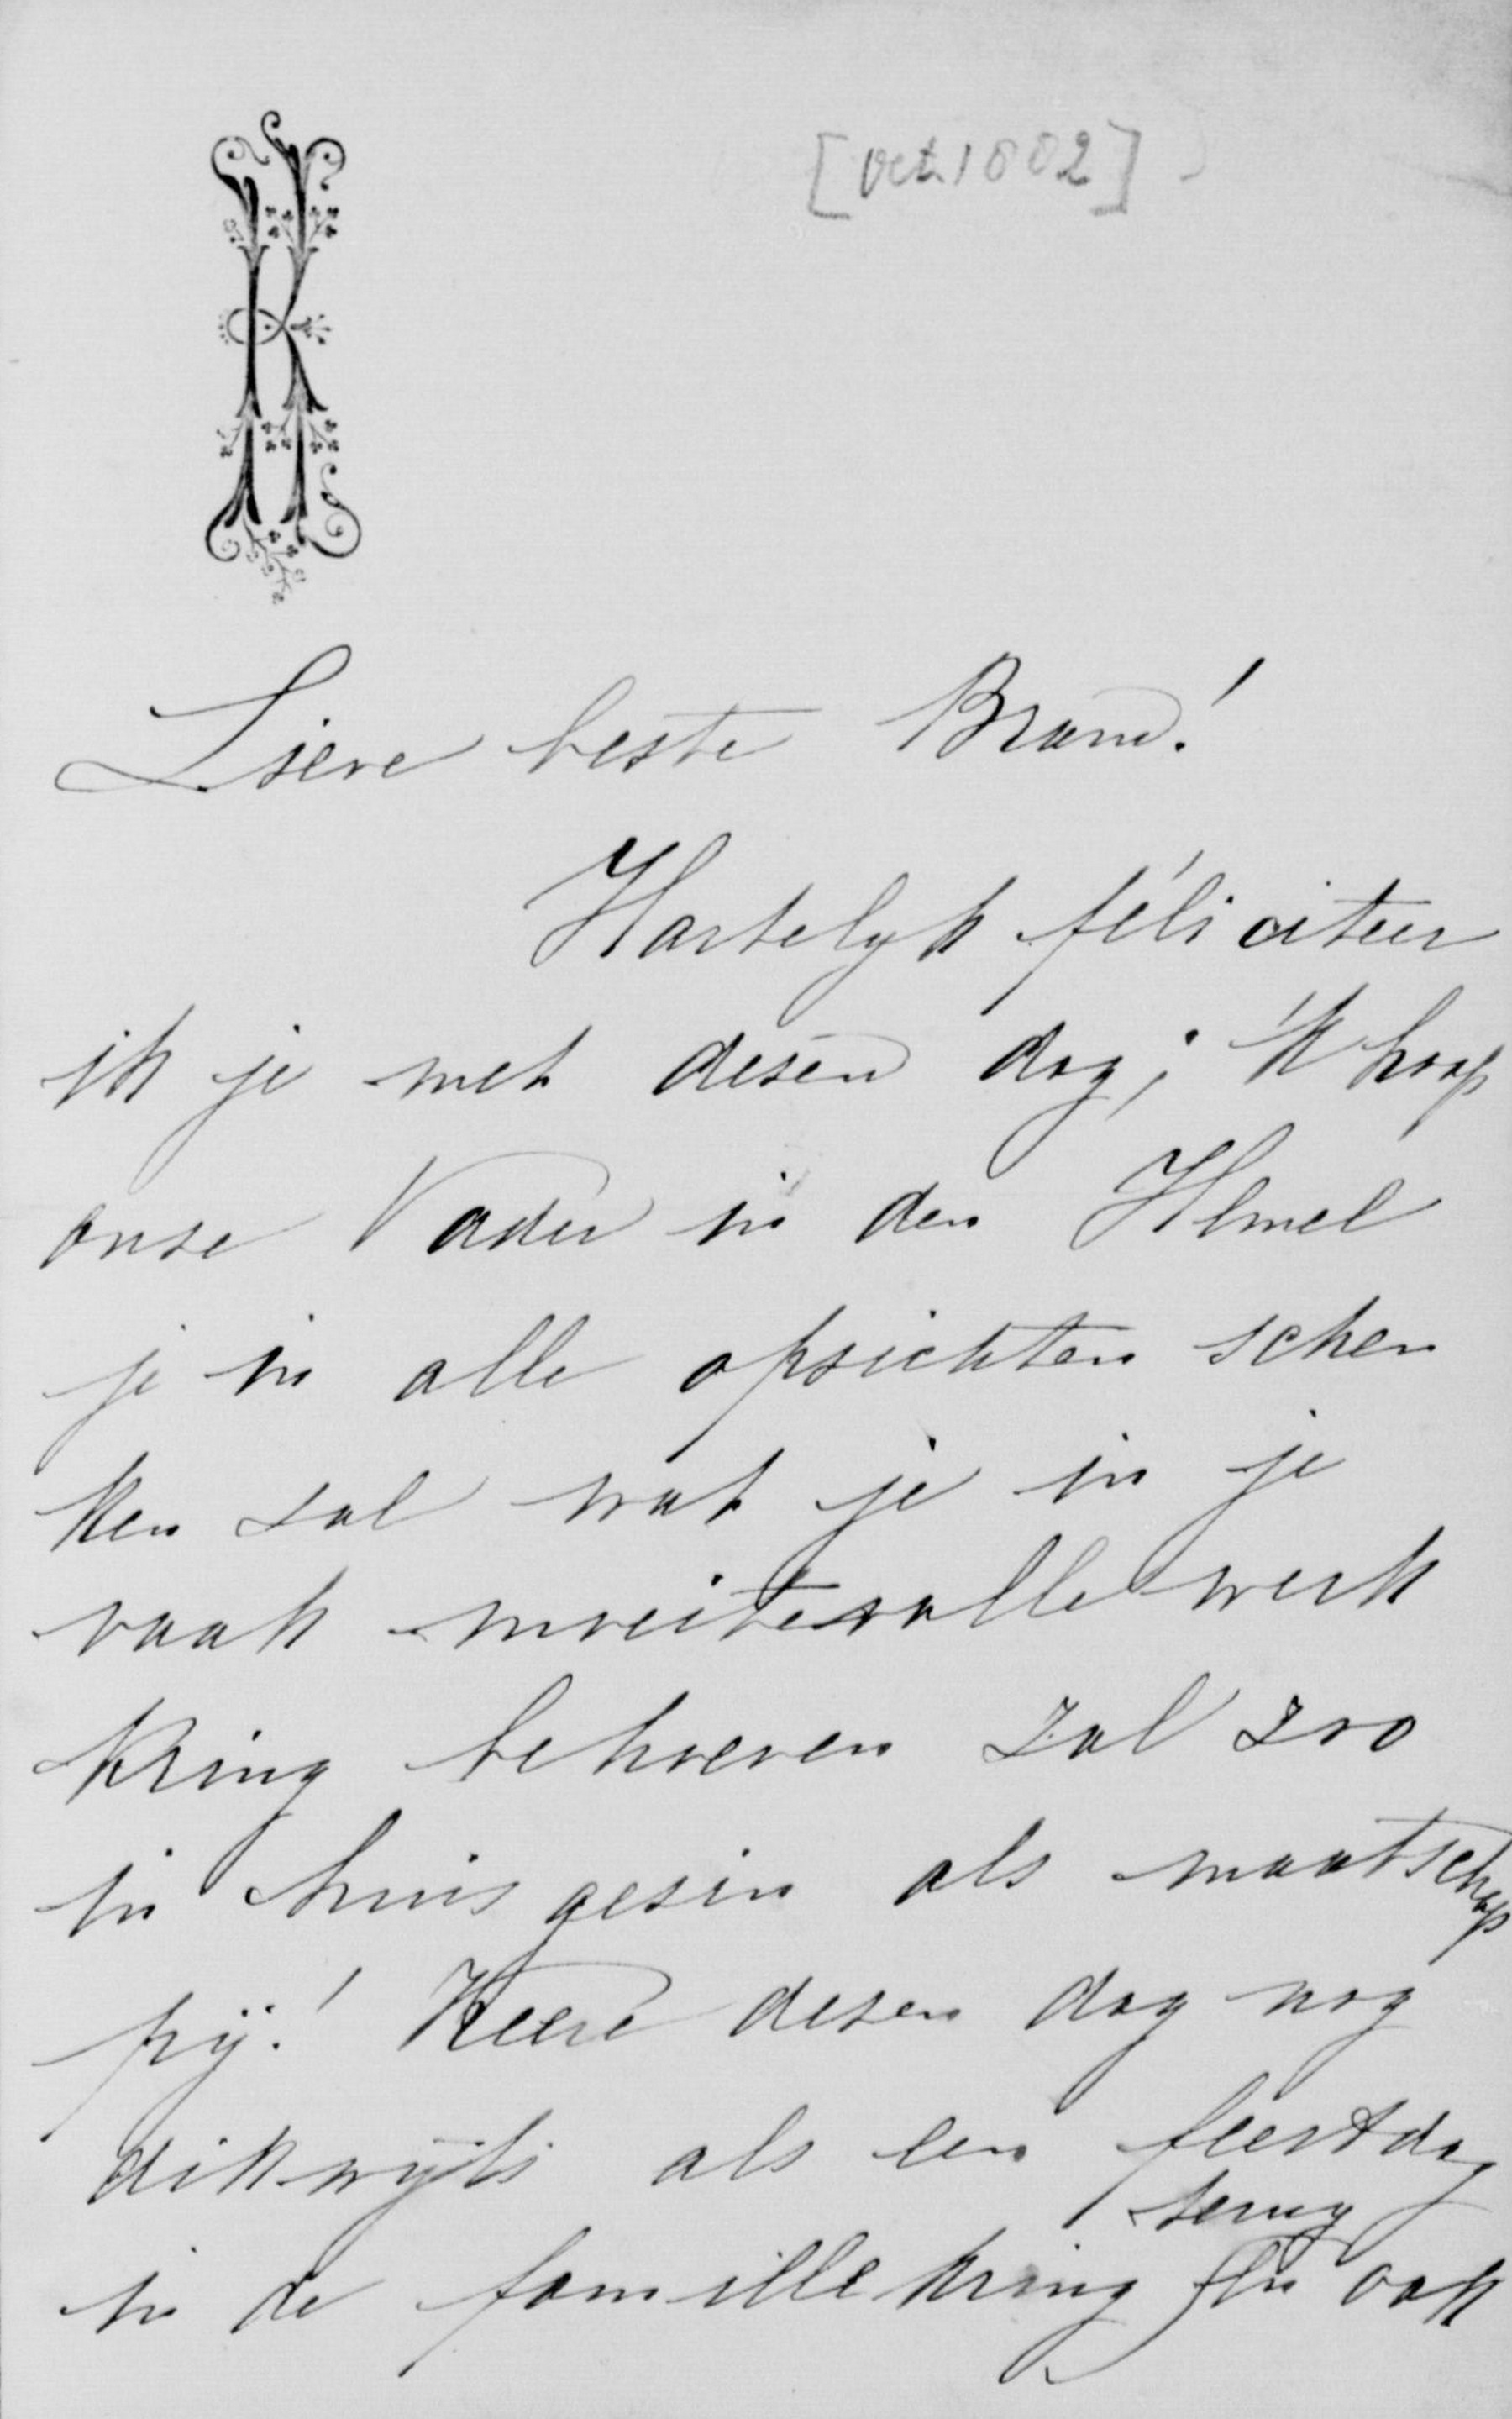 [Oct. 1882]
K
Lieve beste Bram!
Hartelyk féliciteer
ik je met desen dag; 'k hoop
onse Vader in den Hemel
je in alle opsichten schen
ken sal wat je in je
vaak moeitevolle werk
kring behoeven zal zoo
in huisgesin als maatschap
pÿ! Keere desen dag nog
dikwÿls als een feestdag
terug
in de famillekring En ook